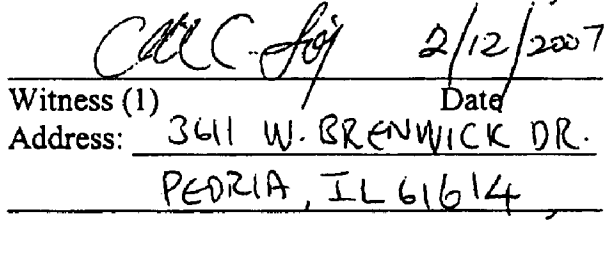 2/12/2007
Witness (1) Date
Address: 3611 W. BRENWICK DR.
PEORIA, IL 61614,